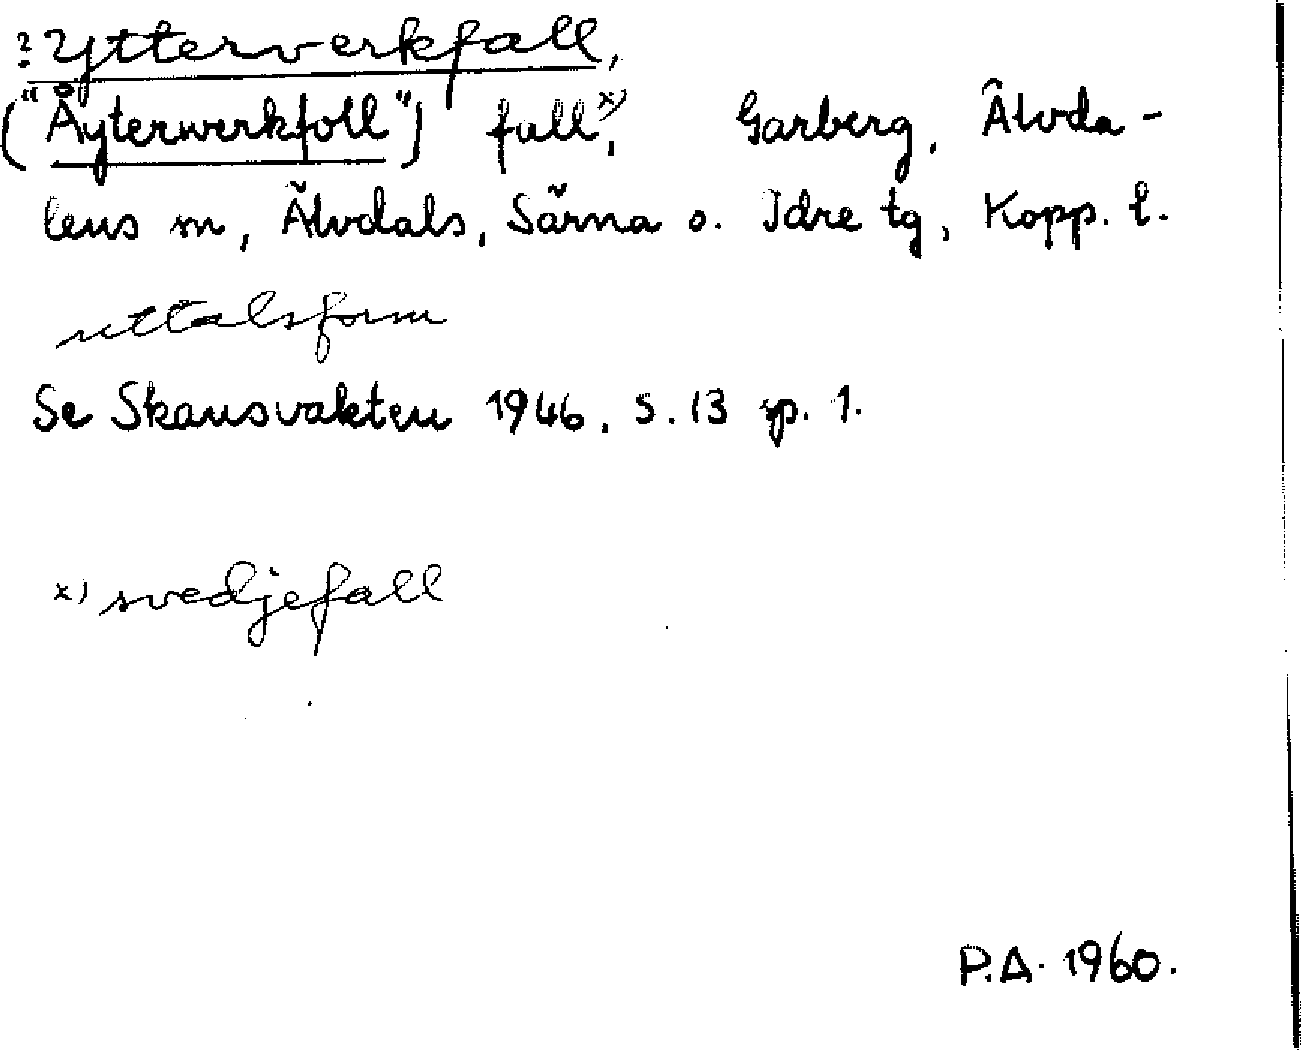 ? Ytterverkfall,
("Åyterwerkfoll") fall x), Garberg, Älvda-
lens sn, Älvdals, Särna o. Idre tg, Kopp. l.
uttalsform
Se Skansvakten 1946, s. 13 sp. 1.
x) svedjefall
P.A. 1960.